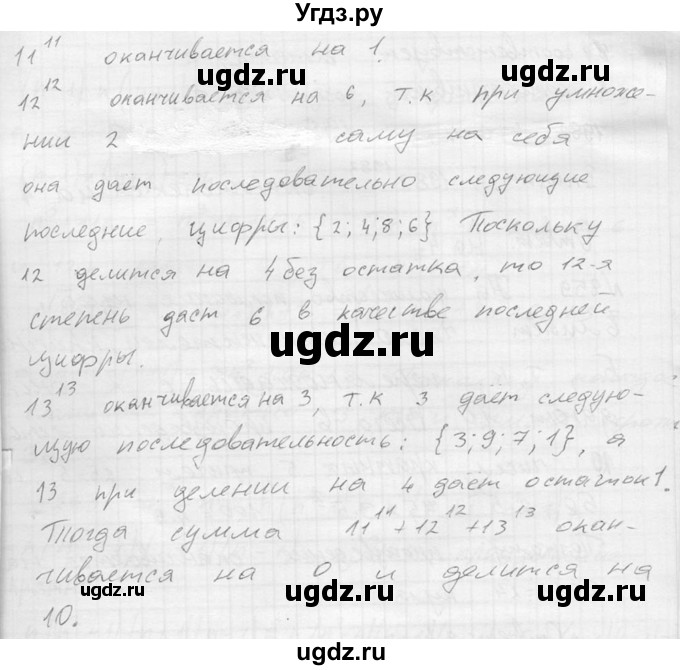 Угдз.ру
11¹¹ оканчивается на 1.
ugdz.ru ugdz.ru
12¹² оканчивается на 6, т.к при умноже-
нии 2 саму на себя
она даёт последовательно следующие
последние цифры: {2;4;8;6} Поскольку
ugdz.ru
12 делится на 4 без остатка, то 12-я
степень даст 6 в качестве последней
ugdz.ru
цифры.
13¹³ оканчивается на 3, т.к 3 даёт следую-
щую последовательность: {3;9;7;1}, а
ugdz.ru
13 при делении на 4 даёт остаток 1.
Тогда сумма 11¹¹+12¹²+13¹³ окан-
чивается на 0 и делится на
ugdz.ru ugdz.ru
10.
ugdz.ru